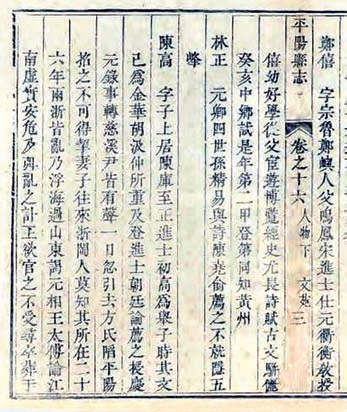 鄭僖 字宗魯鄭嶼人父鳴鳳宋進士仕元衢教授
平陽縣志 卷之十六 人物下 文苑 三
僖幼好學從父宦遊博覽經史尤長詩賦古文騈儷
癸亥中鄉試是年第二甲登第同知黃州
林正 元卿四世孫精易與詩陳堯俞薦之不就號五
峰
陳高 字子上居陳庫至正進士初高為舉子時其文
已為金華胡汲仲所重及登進士朝廷論薦之授慶
元錄事轉慈溪尹皆有聲一日忽引去方氏陷平陽
招之不可得挈妻子往來浙閩人莫知其所在二十
六年兩浙皆亂乃浮海過山東謁元相王太傅論江
南虛實安危及興亂之計王欲官之不受尋卒葬于